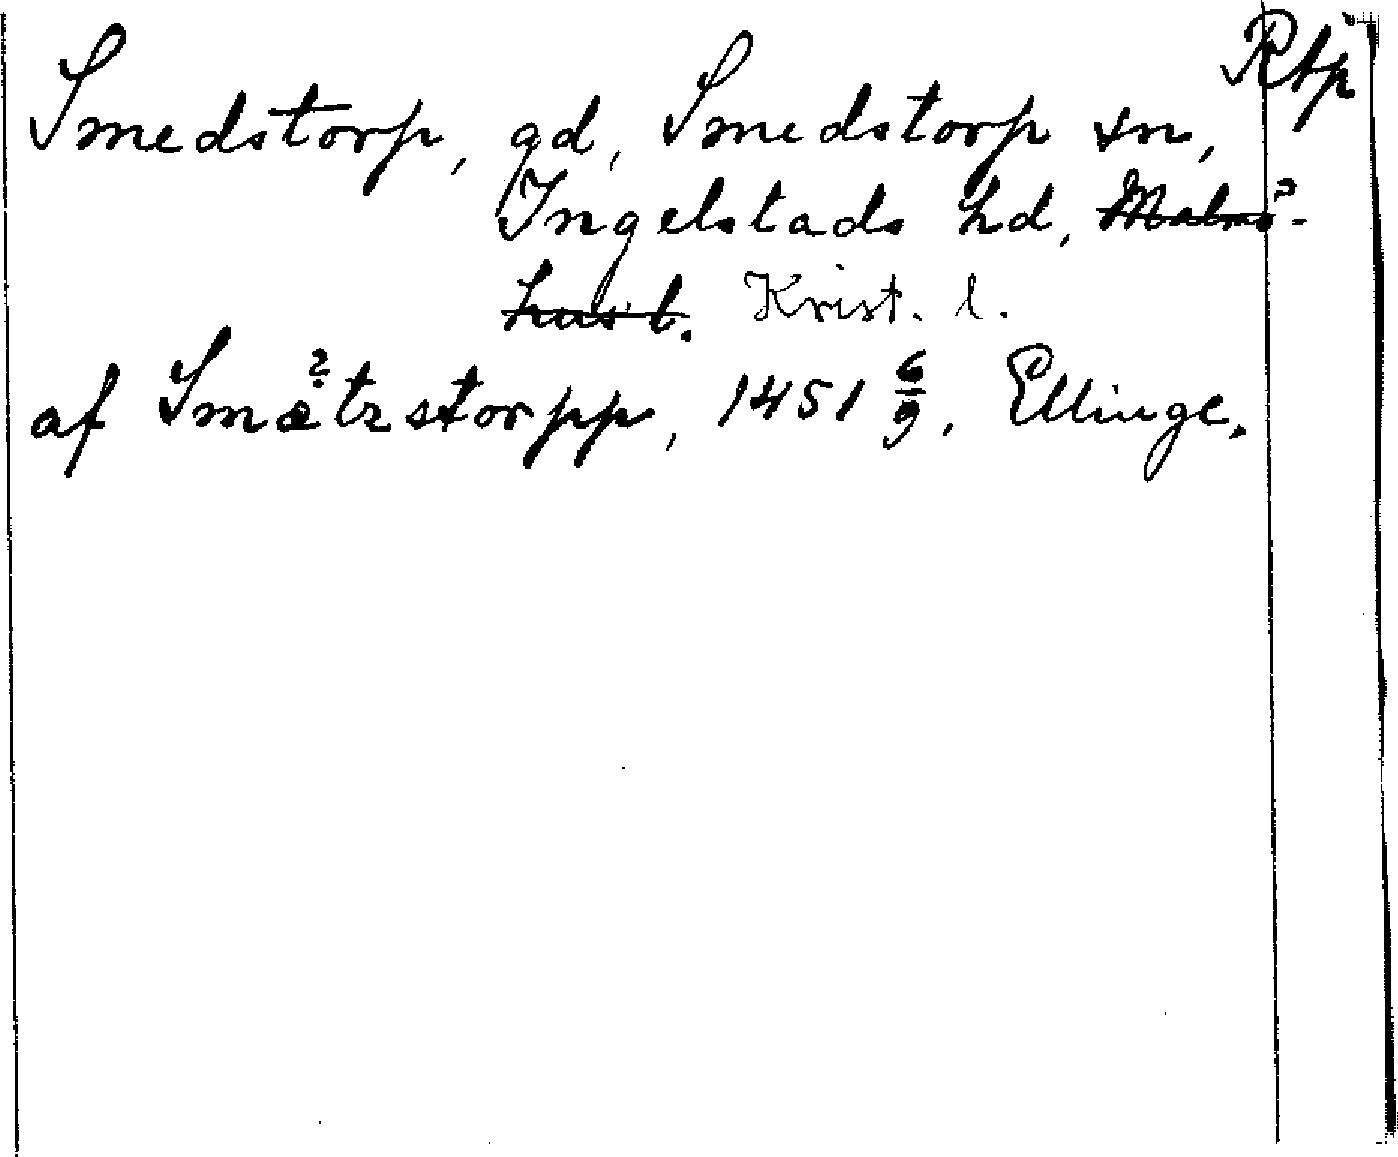 Rtp
Smedstorp, gd, Smedstorp sn,
Ingelstads hd, Malmö-
hus l. Krist. l.
af Smætzstorpp, 1451 6/9, Ellinge.